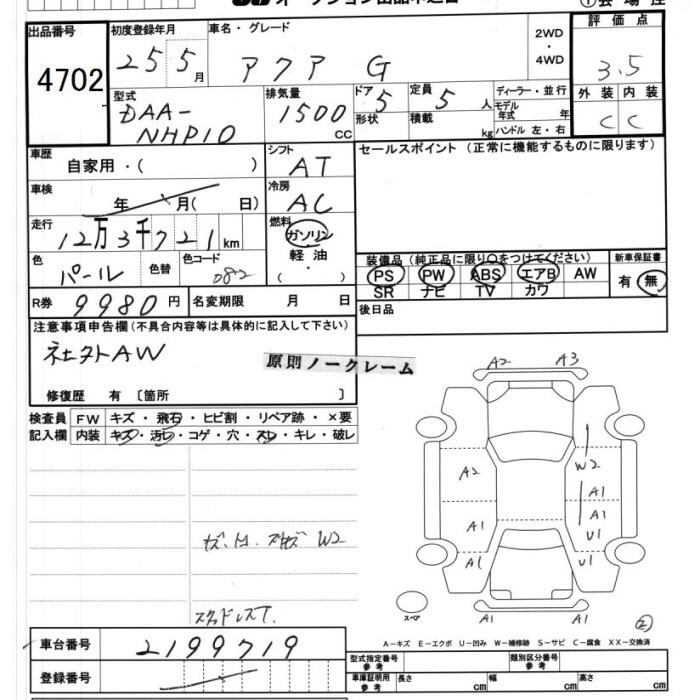 出品番号 初度登録年月 車名・グレード 2WD ・ 4WD 評価点
4702 25 5月 アクア G 3.5
型式 排気量 ドア 定員 ディーラー・並行 外装 内装
DAA-NHP10 1500cc 5 形状 5人 積載 kg モデル年式 年 ハンドル 左・右 C C
車歴 自家用・( ) シフト AT セールスポイント (正常に機能するものに限ります)
車検 年 月( 日) 冷房 AC
走行 12万3千721km 燃料 ガソリン 軽油 ・ ( )
色 パール 色替 色コード 082
装備品 (純正品に限り○をつけてください) 新車保証書
PS PW ABS エアB AW 有 無
SR ナビ TV カワ
R券 9980円 名変期限 月 日 後日品
注意事項申告欄(不具合内容等は具体的に記入して下さい)
社外AW
原則ノークレーム
修復歴 有 〔箇所 〕
検査員 FW キズ・飛石・ヒビ割・リペア跡・×要
記入欄 内装 キズ・汚レ・コゲ・穴・スレ・キレ・破レ
A2 A3
W2
A2 A1
A1 A1
U1
A1 U1
A1 A1
W2
スペア
2
A-キズ E-エクボ U-凹み W-補修跡 S-サビ C-腐食 XX-交換済
車台番号 2199719
型式指定番号 参考 類別区分番号 参考
登録番号
車庫証明用 参考 長さ cm 幅 cm 高さ cm